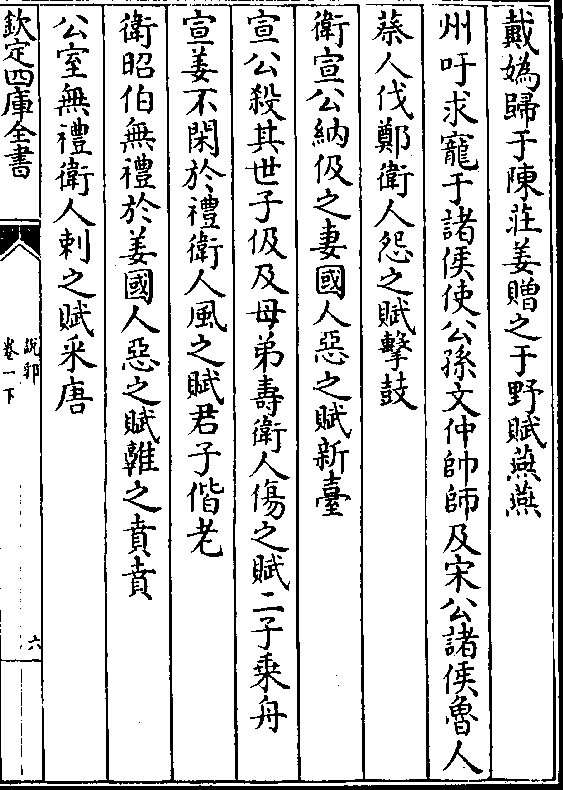 戴媯歸于陳莊姜贈之于野賦燕燕
州吁求寵于諸侯使公孫文仲帥師及宋公諸侯魯人
蔡人伐鄭衛人怨之賦擊鼓
衛宣公納伋之妻國人惡之賦新臺
宣公殺其世子伋及母弟壽衛人傷之賦二子乗舟
宣姜不閑於禮衛人風之賦君子偕老
衛昭伯無禮於姜國人惡之賦雜之賁賁
公室無禮衛人刺之賦采唐
欽定四庫全書
說郛
卷一下
六